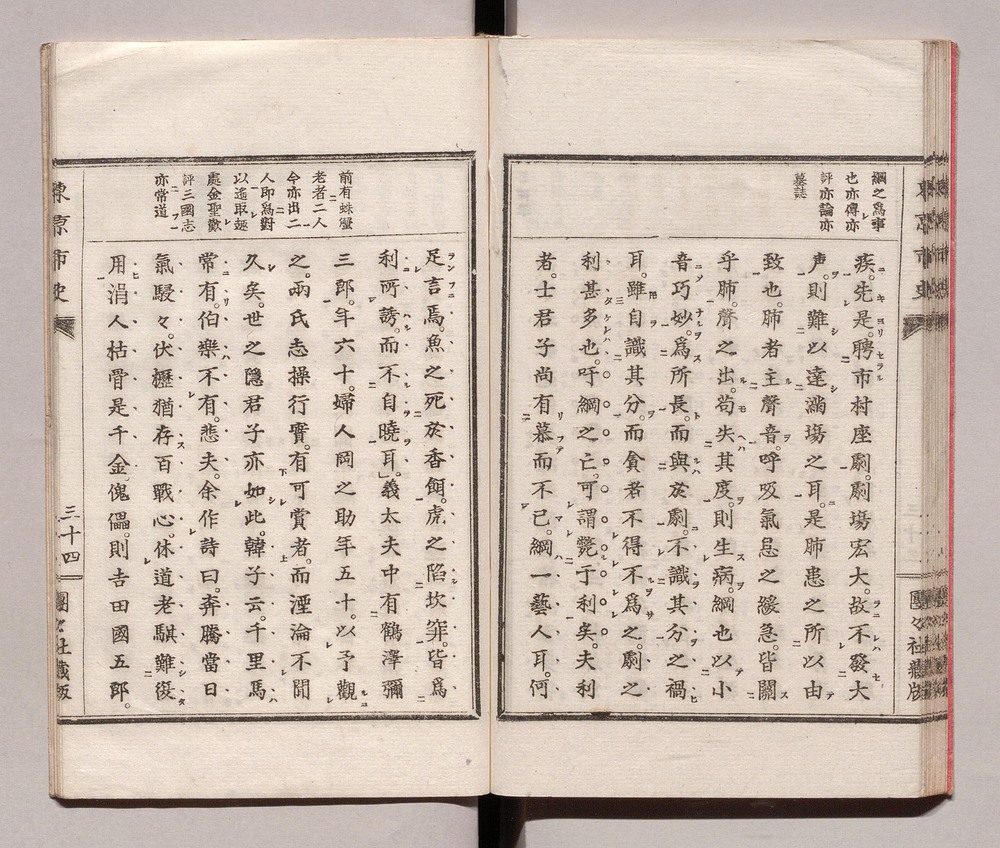 綱之爲事
也亦傳亦
評亦論亦
墓誌
疾。先是。聘市村座劇。劇塲宏大。故不發大
声。則難以達滿塲之耳。是肺患之所以由
致也。肺者主聲音。呼吸氣息之緩急。皆關
乎肺。聲之出。苟失其度。則生病。綱也以小
音巧妙。爲所長。而與於劇。不識其分之禍
耳。雖自識其分。而貪者不得不爲之。劇之
利甚多也。吁綱之亡。可謂斃于利矣。夫利
者。士君子尚有慕而不已。綱一藝人耳。何
東京市史
前有蛛蟹
老者二人
今亦出二
人即爲對
以遙取趣
處金聖歎
評三國志
亦常道
足言焉。魚之死於香餌。虎之陷坎穽。皆爲
利所誘。而不自曉耳。」義太夫中有鶴澤彌
三郎。年六十。婦人岡之助年五十。以予觀
之。兩氏志操行實。有可賞者。而湮淪不聞
久矣。世之隱君子亦如此。韓子云。千里馬
常有。伯樂不有。悲夫。余作詩曰。奔騰當日
氣駸々。伏櫪猶存百戰心。休道老騏難復
用。涓人枯骨是千金。」傀儡。則吉田國五郎。
東京市史
三十四
團々社藏版